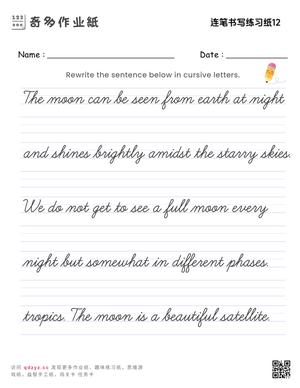 奇多作业紙
连笔书写练习纸12
Name : Date :
Rewrite the sentence below in cursive letters.
The moon can be seen from earth at night
and shines brightly amidst the starry skies.
We do not get to see a full moon every
night but somewhat in different phases.
tropics. The moon is a beautiful satellite.
访问 qdayz.cc 发现更多作业纸、趣味练习纸、思维游
戏纸、益智手工纸、闯关卡 任务卡